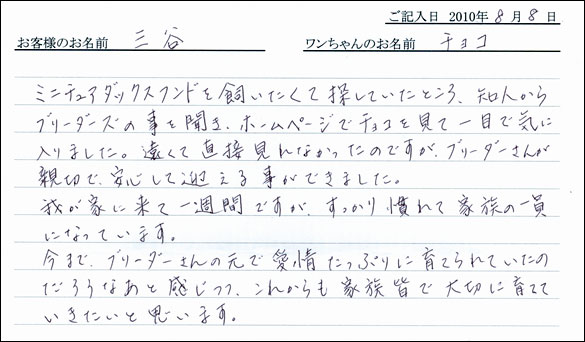 ご記入日 2010年 8月 8日
お客様のお名前 三谷 ワンちゃんのお名前 チョコ
ミニチュアダックスフンドを飼いたくて探していたところ、知人から
ブリーダーズの事を聞き、ホームページでチョコを見て一目で気に
入りました。遠くて直接見れなかったのですが、ブリーダーさんが
親切で、安心して迎える事ができました。
我が家に来て一週間ですが、すっかり慣れて家族の一員
になっています。
今まで、ブリーダーさんの元で愛情たっぷりに育てられていたの
だろうなあと感じつつ、これからも家族皆で大切に育てて
いきたいと思います。